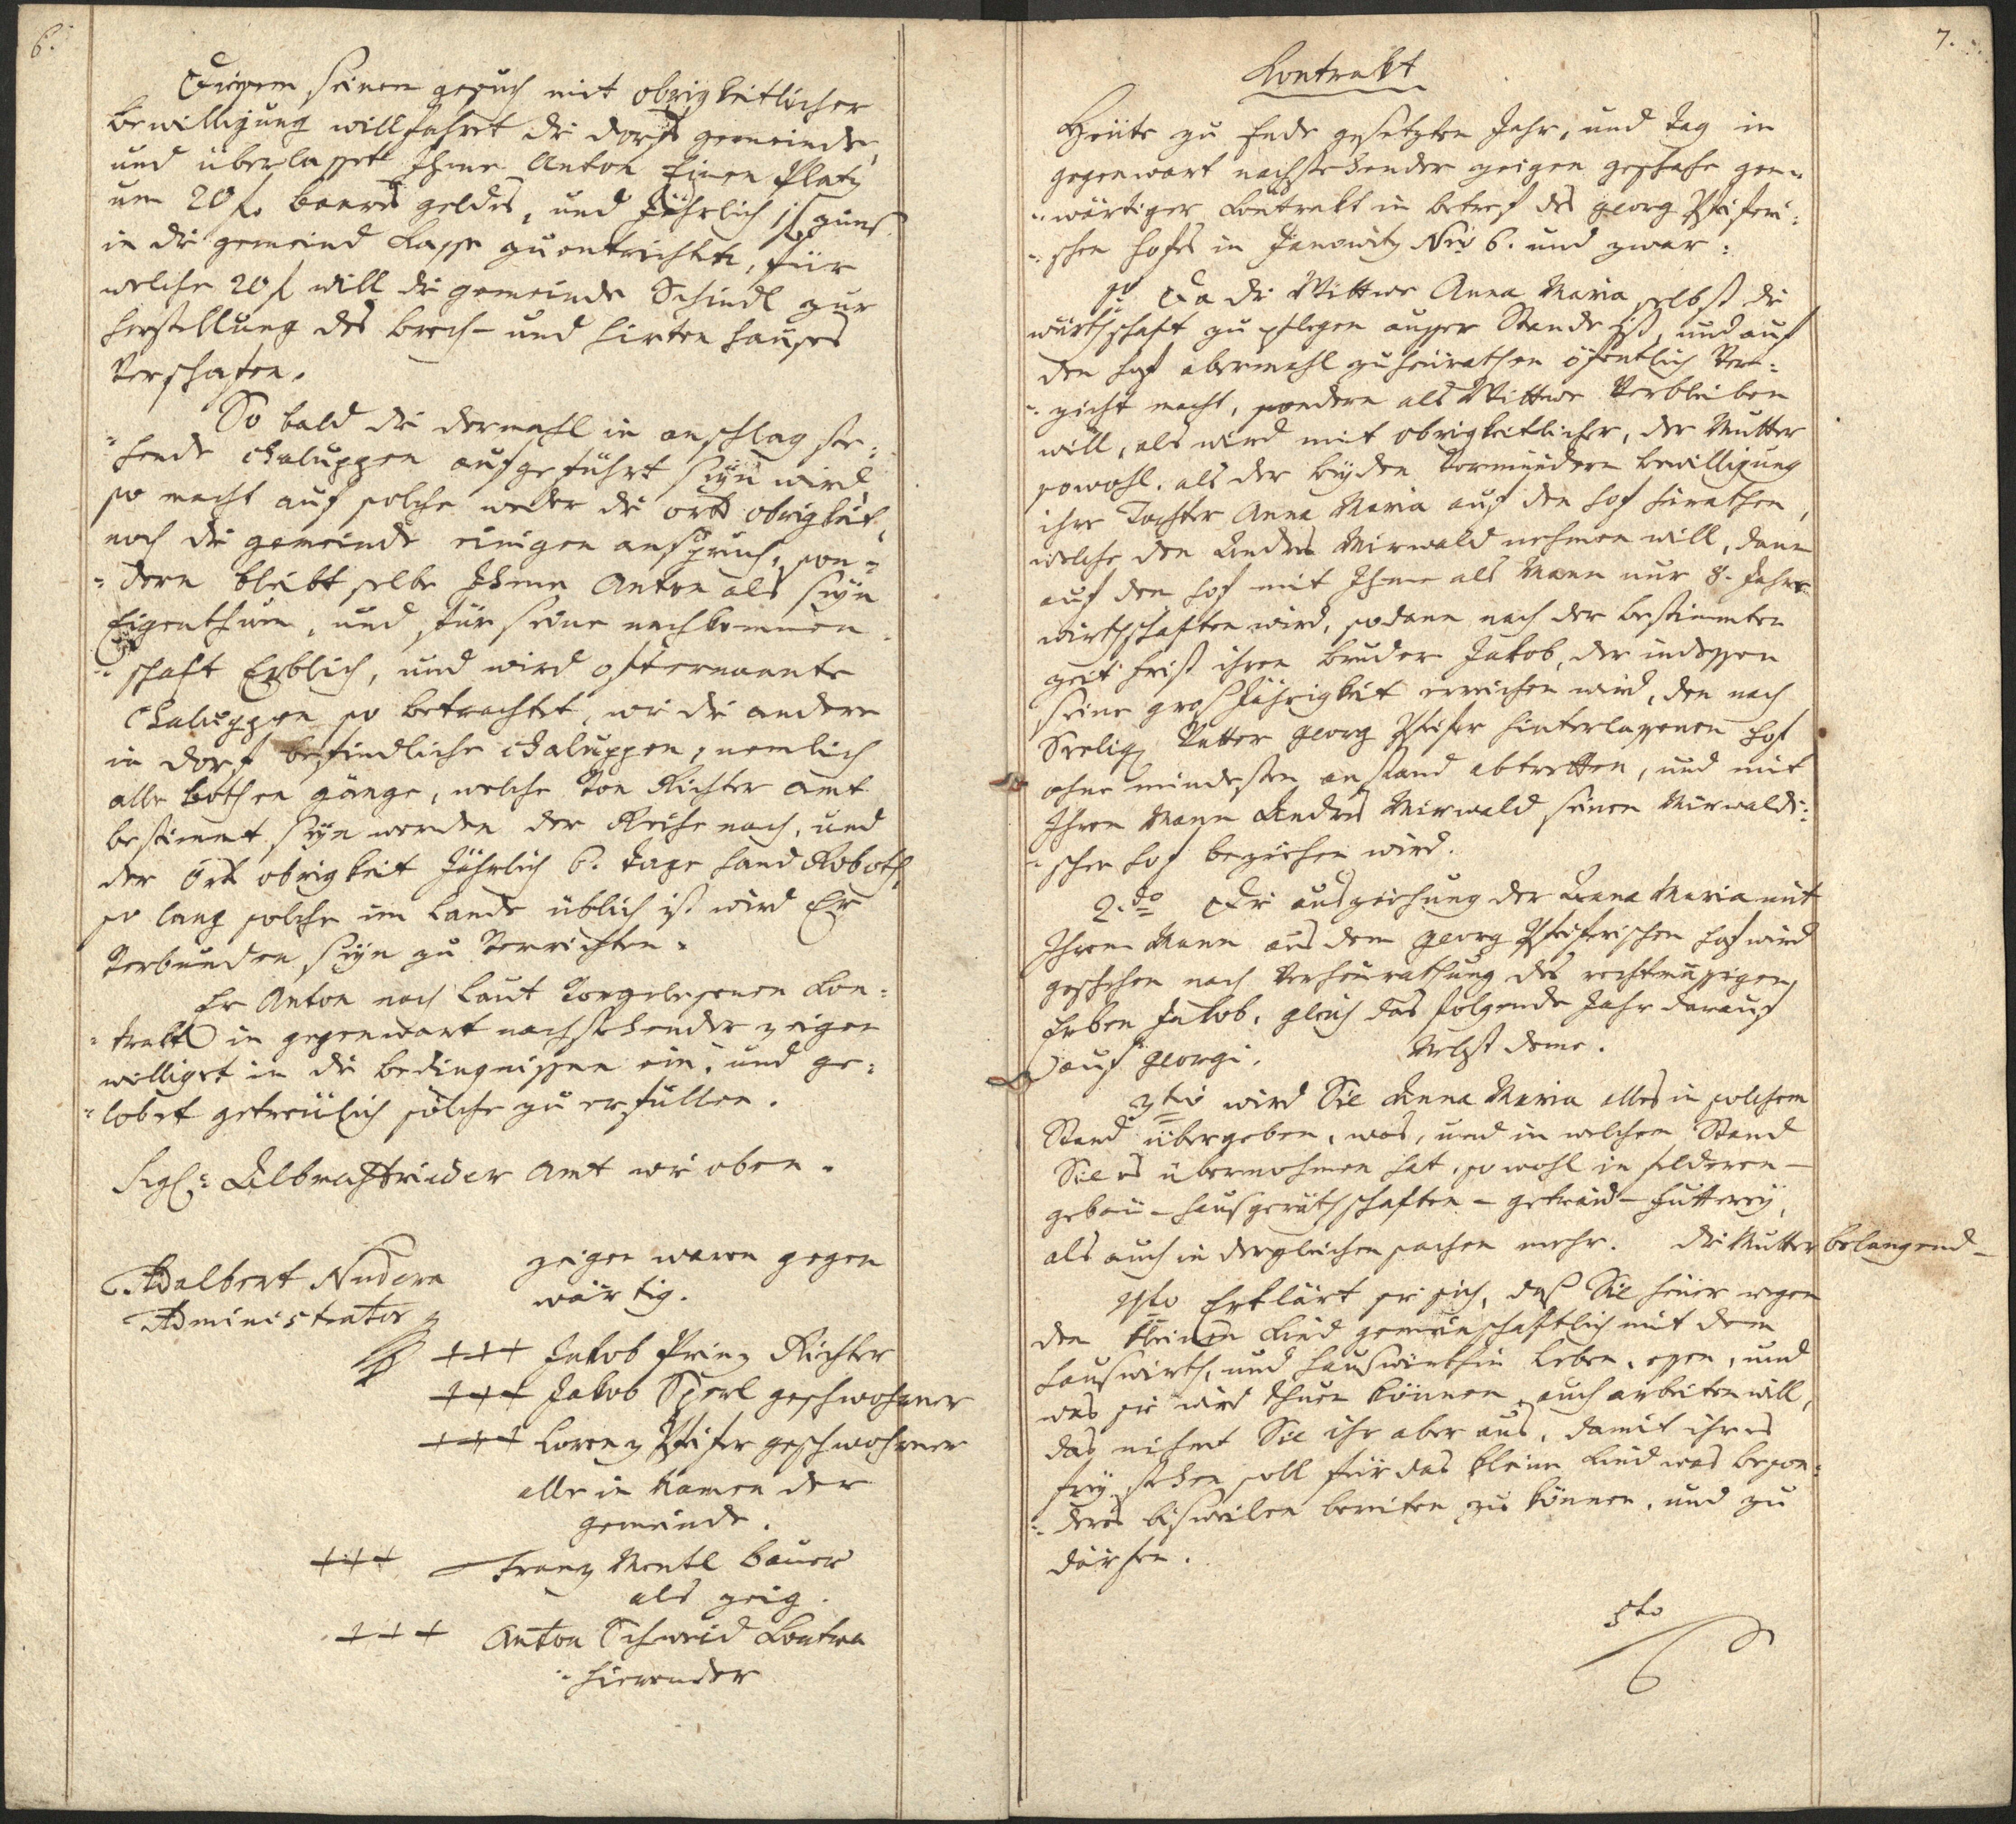 6.
Diesem seinem gesuch mit obrigkeitlicher
bewilligung willfahret die dorfs gemeinde,
und überlasset Ihme Anton Einen Platz
um 20 f. baares geldes, und Jährlich 1 f zins
in die gemeind Kasse zu entrichten, für
welche 20 f will die gemeinde Schindl zur
herstellung des brech- und hirten hauses
Verschafen.
So bald die dermahl in anschlag ste=
=hende Chaluppen aufgeführt seÿn wird,
so macht auf solche weder die orts obrigkeit,
noch die gemeinde einigen anspruch, son=
=dern bleibt selbe Ihme Anton als seÿn
Eigenthum, und für seine nachkommen=
=schaft Erblich, und wird ofternannte
Chaluppen so betrachtet, wie die andere
in dorf befindliche Chaluppen, nemlich
alle bothen gänge, welche Von Richter amt
bestimmt seÿn werden der Reihe nach, und
der Orts obrigkeit Jährlich 6. tage hand Roboth,
so lang solche im Lande üblich ist wird Er
Verbunden seÿn zu Verrichten.
Er Anton nach laut Vorgelesenen Kon=
=trakt in gegenwart nachstehender zeigen
williget in die bedingnissen ein, und ge=
=lobet getreülich solche zu erfüllen.
Sigl: Albrechtrieder Amt wie oben.
Adalbert Nudera
Administrator
zeigen waren gegen
wärtig.
+++ Jakob Prinz Richter
+++ Jakob Sperl geschwohrner
+++ Lorenz Pfeifer geschwohrner
alle in Namen der
gemeinde.
+++ Franz Mentl bauer
als zeig.
+++ Anton Schmid Kontra
=hierender
7.
Kontrakt
Heüte zu Ende gesetzten Jahr, und tag in
gegenwart nachstehender zeigen geschahe gen=
=wärtiger Kontrakt in betref des georg Pfeiferi=
=schen hofes in Janowitz Nro 6. und zwar:
1mo Da die Wittwe Anna Maria selbst die
wirthschaft zu pflegen ausser Stande ist, und auf
den hof abermahl zu heürathen öfentlich Ver=
=zicht macht, sondern als Wittwe Verbleiben
will, als wird mit obrigkeitlicher, der Mutter
sowohl, als der beÿden Vormündern bewilligung
ihre Tochter Anna Maria auf den hof heürathen,
welche den Andres Mirwald nehmen will, dann
auf den hof mit Ihme als Mann nur 8. Jahre
wirthschaften wird, sodann nach der bestimmten
zeit frist ihren bruder Jakob, der indessen
seine grosJährigkeit erreichen wird, den nach
Seelig Vatter georg Pfeifer hinterlassenen hof
ohne mindesten anstand abtretten, und mit
Ihren Mann Andres Mirwald seinen Mirwaldi=
=schen hof beziehen wird.
2.do Die ausziehung der Anna Maria mit
Ihrem Mann aus dem georg Pfeiferischen hof wird
geschehen nach Verheürathung des rechtmässigen
Erben Jakob, gleich das folgende Jahr darauf
auf georgi. Nebst deme.
3tio wird Sie Anna Maria alles in solchem
Stand übergeben, was, und in welchem Stand
Sie es übernohmen hat, so wohl in feldern -
gebäu - hausgeräthschaften - getreid - futtereÿ,
als auch in dergleichen sachen mehr. Die Mutter belangend -
4to Erklärt sie sich, daß Sie heüer wegen
den kleinen Kind gemeinschaftlich mit dem
hauswirth, und hauswirthin leben, essen, und
was sie wird thuen können, auch arbeiten will,
das nihmt Sie ihr aber aus, damit ihr es
freÿ stehen soll für das kleine Kind was beson=
=deres bisweilen bereiten zu können, und zu
därfen.
5to